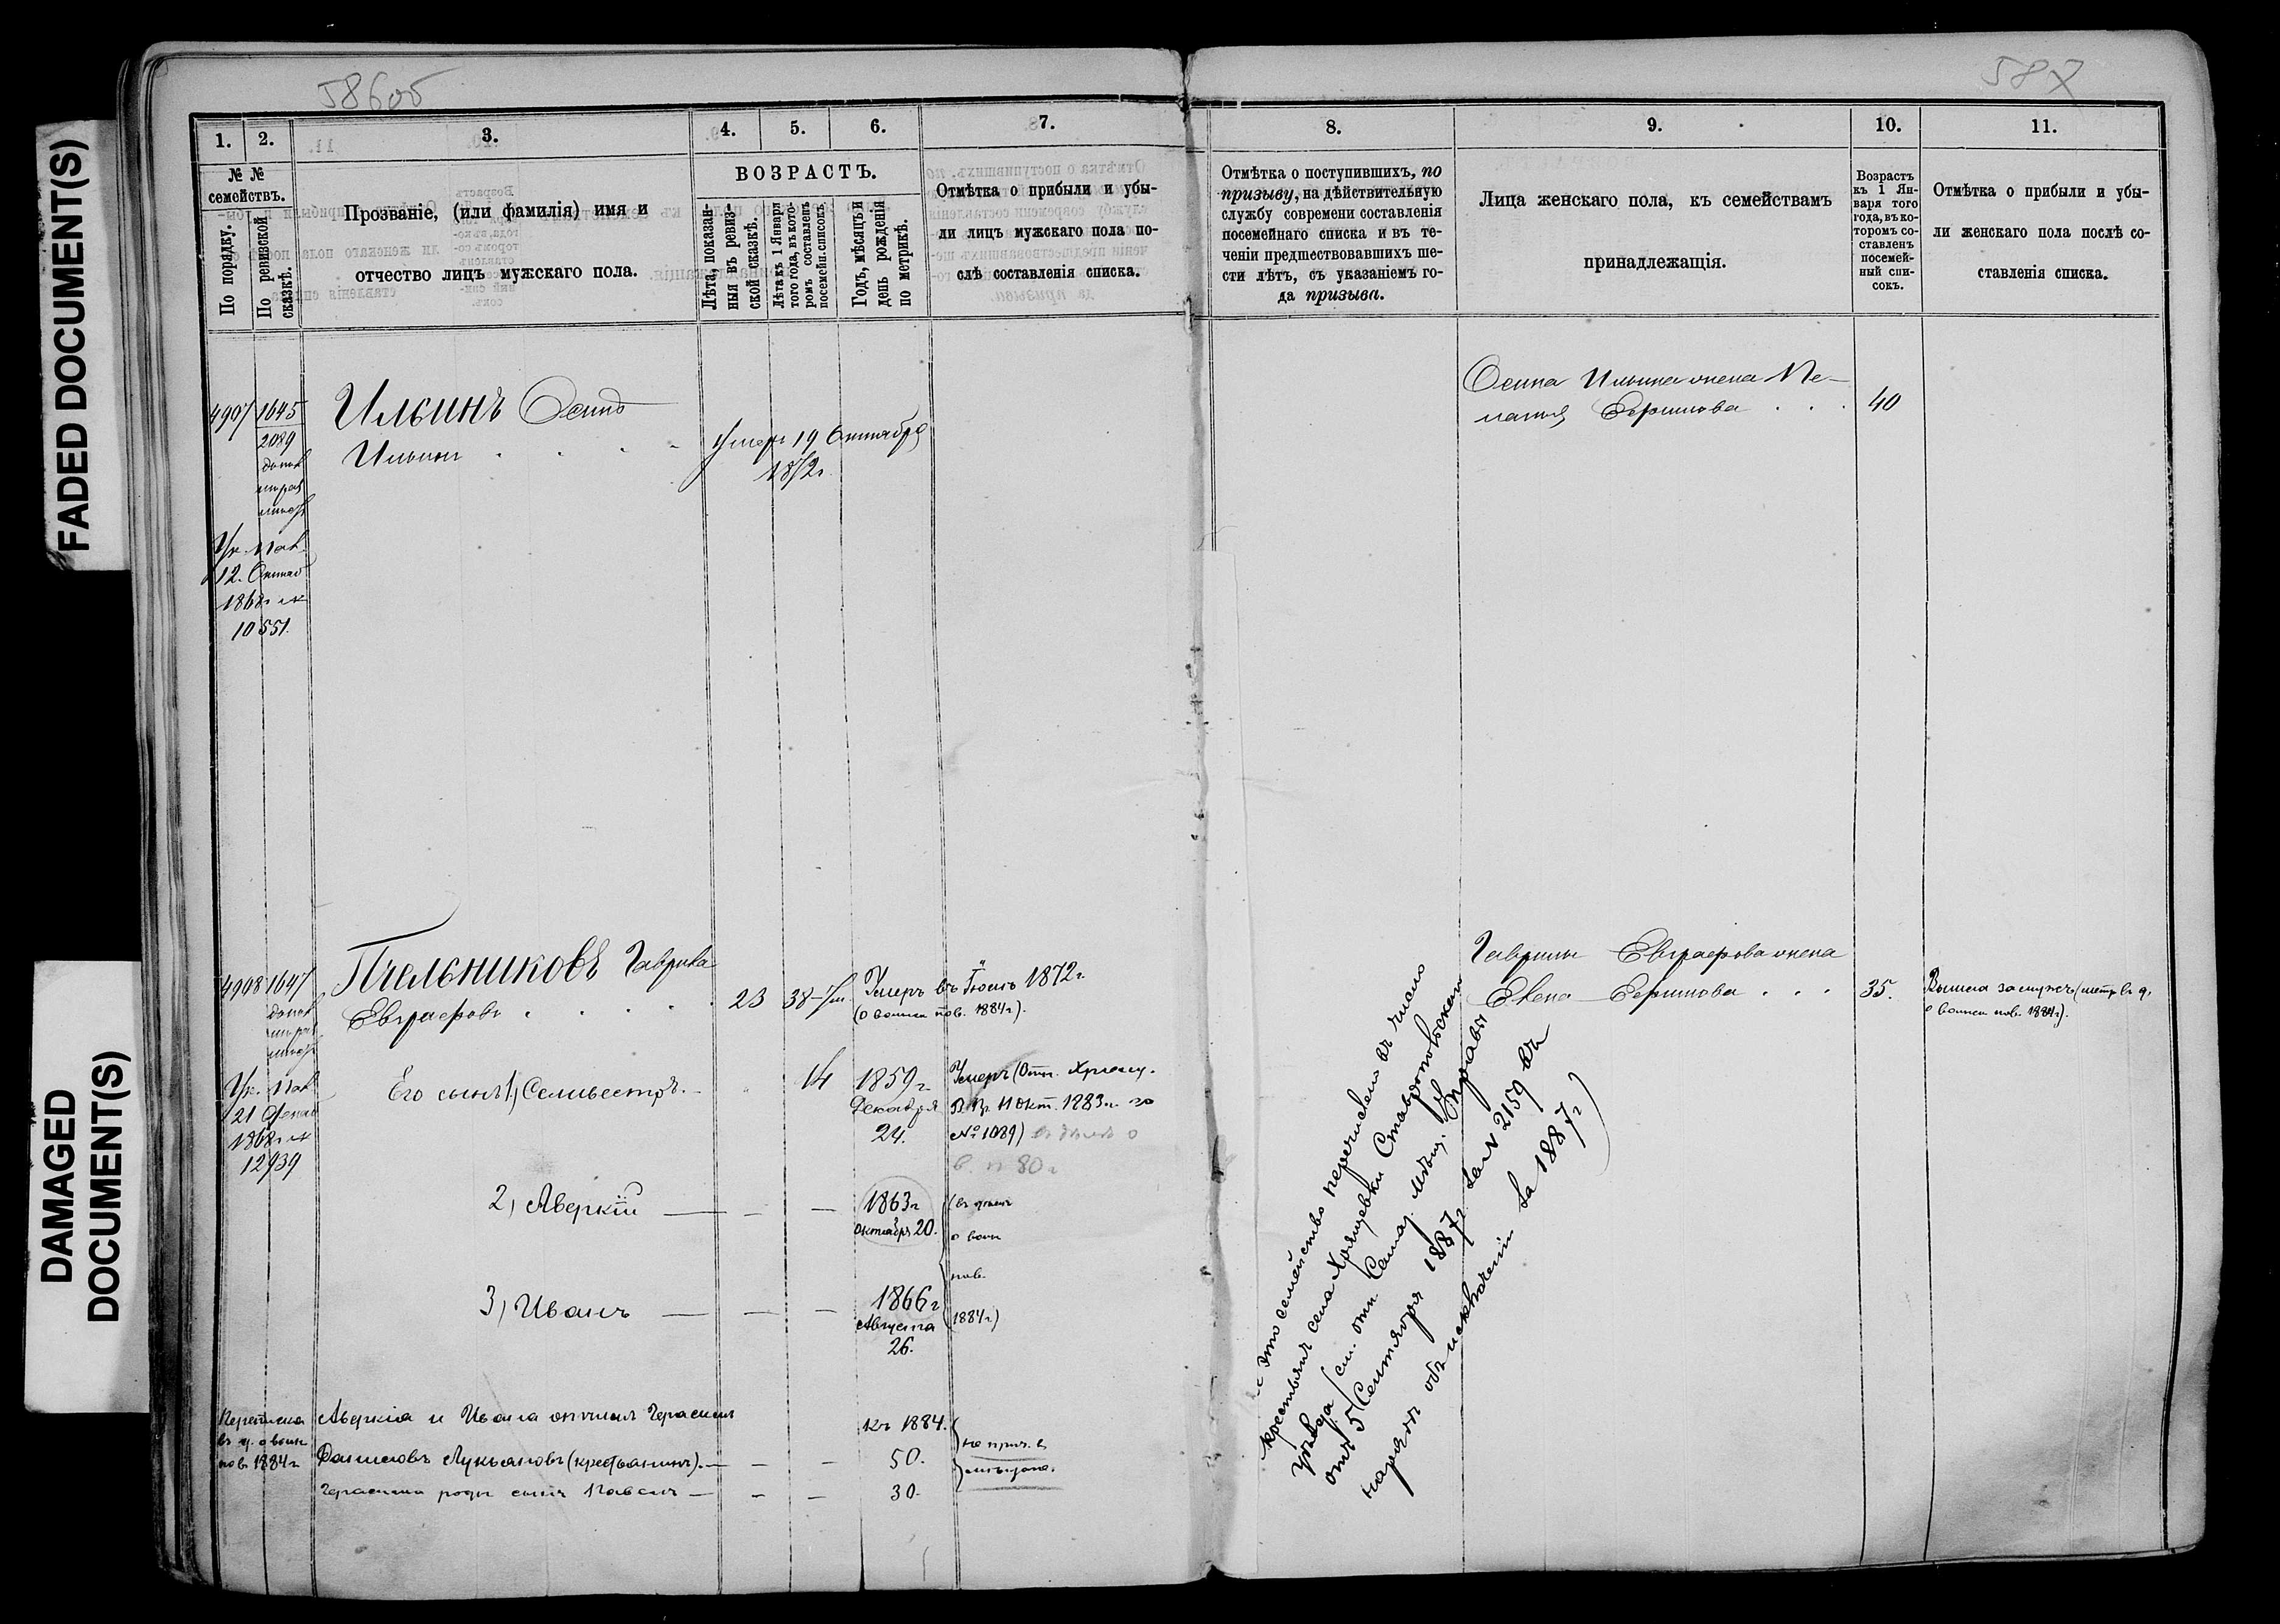 FADED DOCUMENT(S)
DAMAGED
DOCUMENT(S)
586об
587
1.
2.
3.
4.
5.
6.
7.
8.
9.
10.
11.
№ №
семействъ.
По порядку.
По ревизской
сказкѣ.
Прозваніе, (или фамилія) имя и
отчество лицъ мужскаго пола.
ВОЗРАСТЪ.
Лѣта, показан-
ныя въ ревиз-
ской сказкѣ.
Лѣта къ 1 Января
того года, въ кото-
ромъ составленъ
посемейн. списокъ
Годъ, мѣсяцъ и
день рожденія
по метрикѣ.
Отмѣтка о прибыли и убы-
ли лицъ мужскаго пола по-
слѣ составленія списка.
Отмѣтка о поступившихъ, по
призыву, на дѣйствительную
службу современи составленія
посемейнаго списка и въ те-
ченіи предшествовавшихъ ше-
сти лѣтъ, съ указаніемъ го-
да призыва.
Лица женскаго пола, къ семействамъ
принадлежащія.
Возрастъ
къ 1 Ян-
варя того
года, въ ко-
торомъ со-
ставленъ
посемей-
ный спи-
сокъ.
Отмѣтка о прибыли и убы-
ли женскаго пола послѣ со-
ставленія списка.
4907
1645
2089
Ильинъ Осипъ
Ильинъ
Умеръ 19 Октября
1872г.
Осипа Ильина жена Ме-
ланія Ефимова
40
12. Октяб
1868г №
10551.
4908
1647
Пчельниковъ Гаврила
Евграфовъ
23
38
Умеръ въ Іюнѣ 1872г
(о воинск пов. 1884г).
Гаврилы Евграфова жена
Елена Ефимова
35.
Вышла замужъ (метр. въ д.
о воинск пов. 1884г).
21 Декаб
1868г №
12939
Его сынъ 1, Селивестръ.
14
1859г
Декабря
24.
Умеръ (Отн. Хрящ.
В. Пр. 11 Окт. 1883г. за
№ 1089) въ дѣлѣ о
в. п 80г
2, Аверкій
1863г
октября 20.
(въ дѣлѣ
о воин
пов.
1884г)
3, Иванъ
1866г
Августа
26.
Переписка
въ д. о воин
пов 1884г
Аверкія и Ивана опекунъ Герасимъ
Даниловъ Лукьяновъ (крестьянинъ).
Герасима родн сынъ Павелъ
къ 1884.
50.
30.
не прич. въ
мѣщане.
Это семейство перечислено въ число
крестьянъ села Хрящевки Ставропольскаго
уѣзда (см. отн. Самар. мѣщ. Управы
отъ 5 Сентября 1887г. за № 2159 въ
нарядѣ объ исключеніи за 1887г)